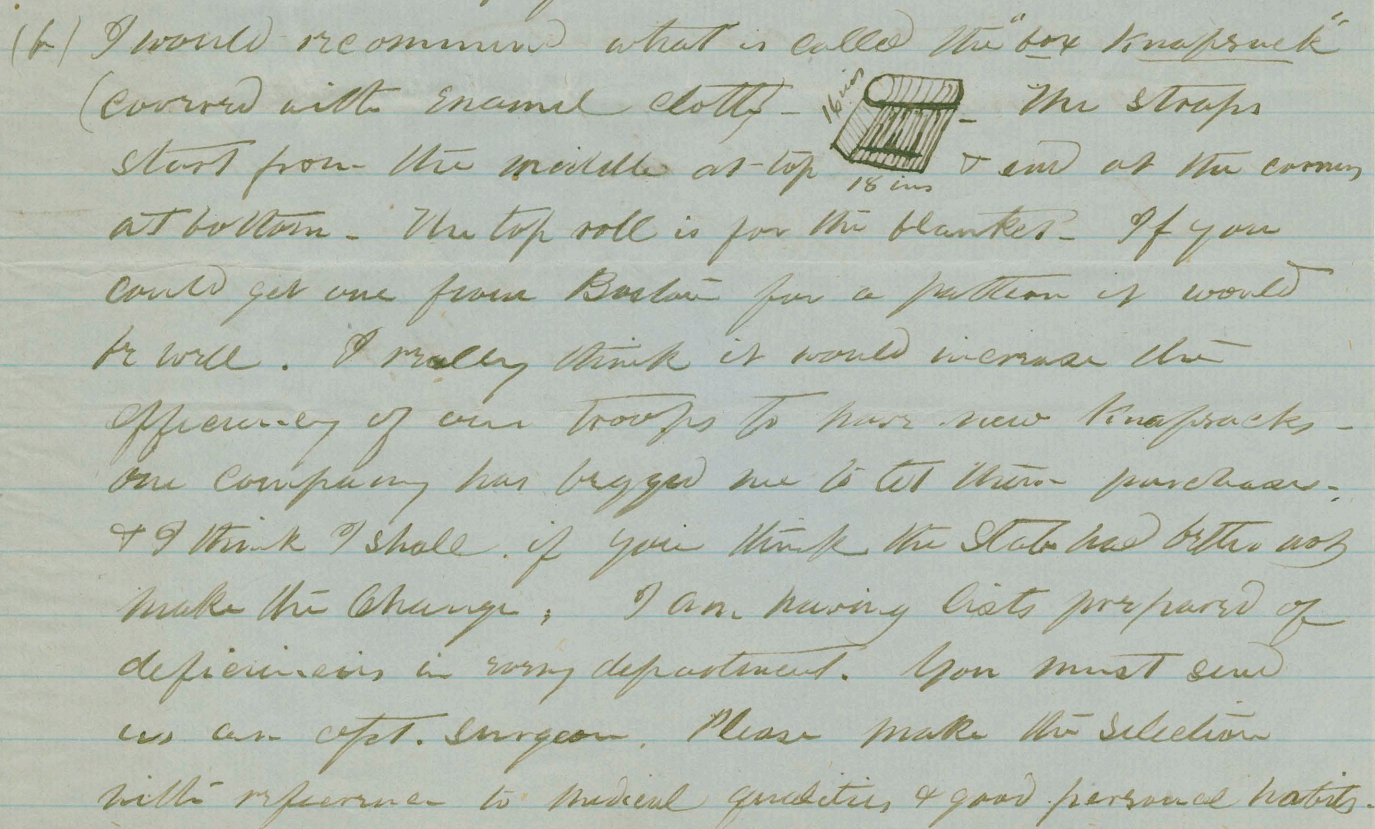 (b) I would recommend what is called the "box Knapsack"
(covered with Enamel cloth) - 16 ins - The straps
start from the middle at top 18 ins & end at the corners
at bottom - The top roll is for the blanket - If you
could get one from Boston for a pattern it would
be well. I really think it would increase the
efficiency of our troops to have new Knapsacks -
one company has begged me to let them purchase -
& I think I shall if you think the State had better not
make the Change; I am having lists prepared of
deficiencies in every department. You must send
us an asst. surgeon. Please make the selection
with reference to medical qualities & good personal habits.